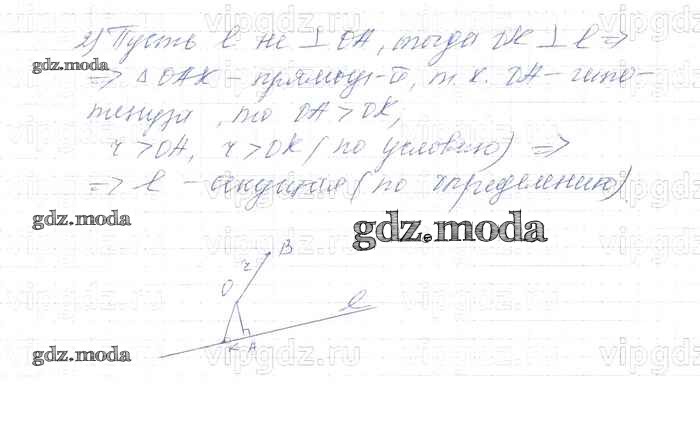 2) Пусть l не ⊥ OA, тогда OK ⊥ l ⇒
⇒ △ OAK – прямоуг-й, т. к. OA – гипо-
тенуза, то OA > OK,
r > OA, r > OK (по условию) ⇒
⇒ l – секущая (по определению)
gdz.moda
gdz.moda
gdz.moda
gdz.moda
vipgdz.ru
B
r
O
l
K A